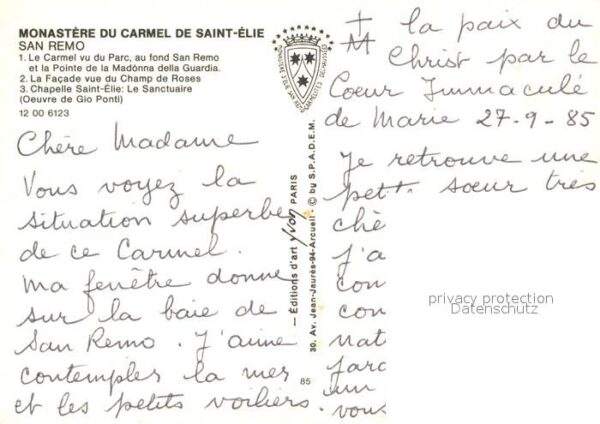 MONASTÈRE DU CARMEL DE SAINT-ÉLIE
SAN REMO
1. Le Carmel vu du Parc, au fond San Remo
et la Pointe de la Madònna della Guardia.
2. La Façade vue du Champ de Roses
3. Chapelle Saint-Élie: Le Sanctuaire
(Oeuvre de Gio Ponti)
12 00 6123
Chère Madame
Vous voyez la
situation superbe
de ce Carmel.
Ma fenêtre donne
sur la baie de
San Remo. J'aime
contempler la mer
et les petits voiliers.
— Éditions d'art yvon PARIS
30. Av. Jean-Jaurès-94-Arcueil © by S.P.A.D.E.M.
85
M la paix du
Christ par le
Coeur Immaculé
de Marie 27-9-85
Je retrouve une
petit. sœur très
chè
J'a
con
con
nat
jard
un
vous
privacy protection
Datenschutz